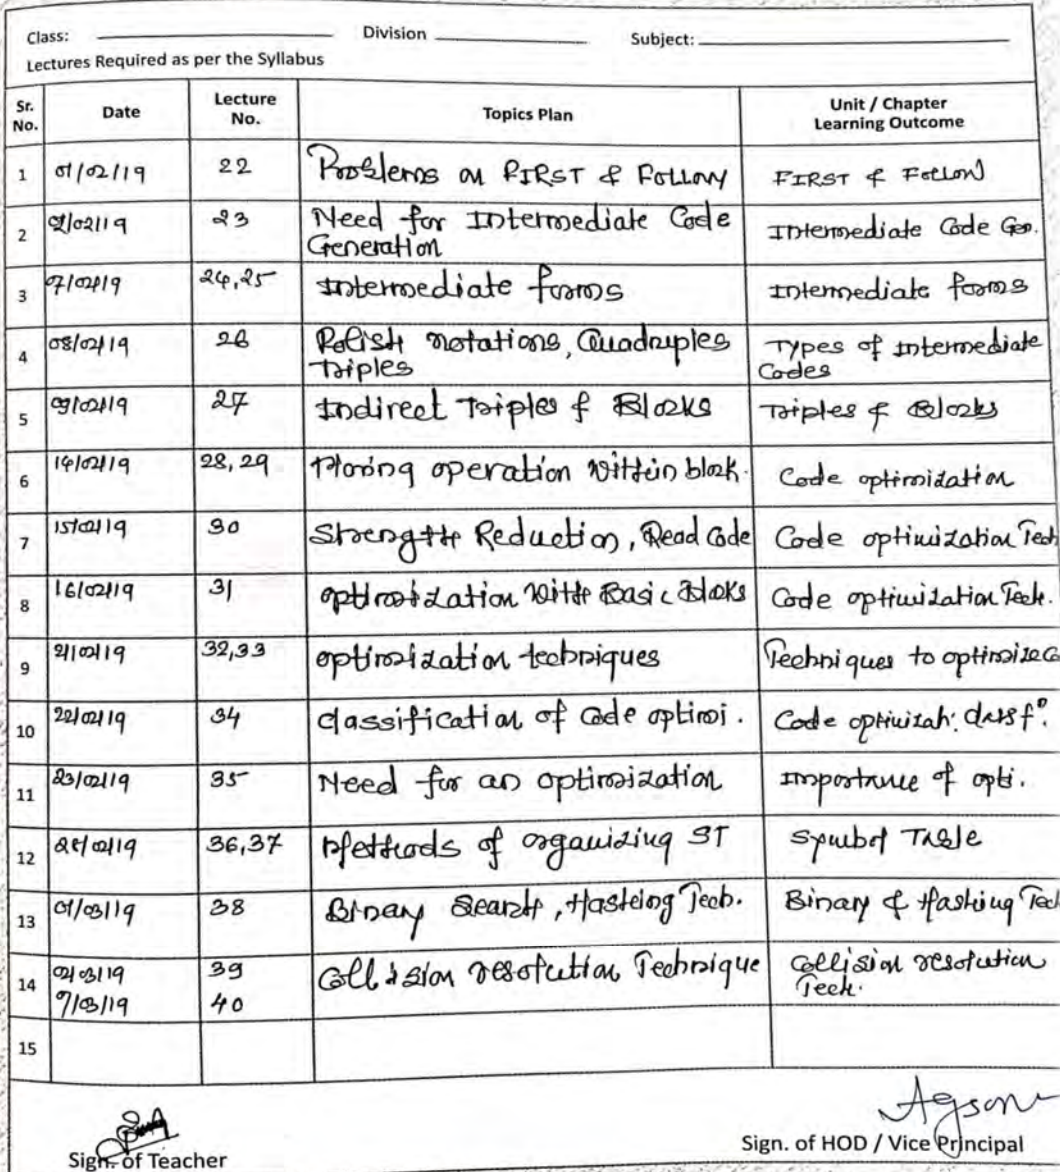 Class: Division Subject:
Lectures Required as per the Syllabus
Sr. No. Date Lecture No. Topics Plan Unit / Chapter Learning Outcome
1 01/02/19 22 Problems on FIRST & Follow FIRST & Follow
2 02/02/19 23 Need for Intermediate Code Intermediate Code Gen.
Generation
3 07/02/19 24,25 Intermediate forms Intermediate forms
4 08/02/19 26 Polish notations, Quadruples Types of Intermediate
Triples Codes
5 09/02/19 27 Indirect Triples & Blocks Triples & Blocks
6 14/02/19 28,29 Moving operation within block. Code optimization
7 15/02/19 30 Strength Reduction, Dead Code Code optimization Tech
8 16/02/19 31 optimization with Basic Bloks Code optimization Tech.
9 21/02/19 32,33 optimization techniques Techniques to optimize
10 22/02/19 34 classification of Code optimi. Code
11 23/02/19 35 Need for an optimization Importance of opti.
12 36,37 Methods of organizing ST Symbol Table
13 01/03/19 38 Binary Search, Hashing Tech. Binary & Hashing Tec
14 02/03/19 39 Collision resolution Technique Collision resolution
7/03/19 40 Tech.
15
Sign. of Teacher Sign. of HOD / Vice Principal